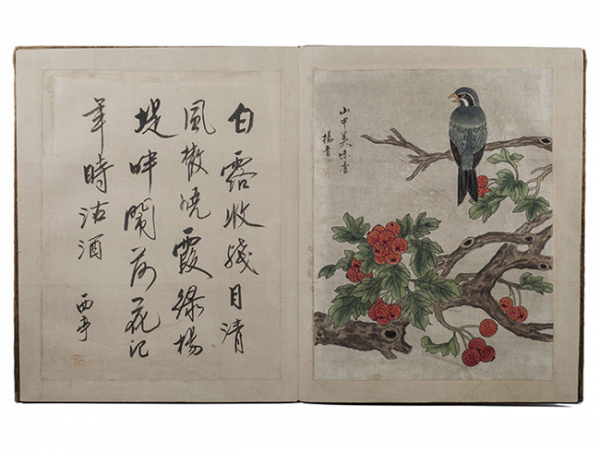 白露收残月清
風散曉霞綠楊
堤畔鬧荷花记
年時沽酒
山中美味香